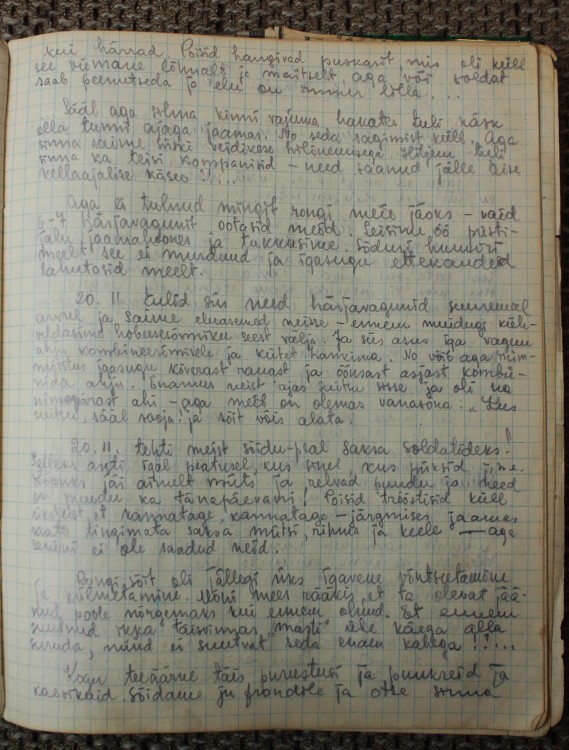 kui härrad. Poisid hangivad puskarit, mis oli küll
see viimane lõhnalt ja maitselt, aga või soldat
saab peenutseda ja elu on ilma lilla...
Sääl aga silma kinni vajuma hakates tuli käsk
olla tunni ajaga jaamas. No seda sagimist küll. Aga
sinna saime siiski veidikese hilinemisega. Hiljem tuli
sinna ka teisi kompaniisid – need saanud jälle teise
kellaajalise käsu!?...
Aga ei tulnud mingit rongi meie jaoks – vaid
6-7 härjavagunit ootasid meid. Seisime öö püsti-
jalu jaamahoones ja tukkusime. Sõduri huumori
meelt see ei murdnud ja igasugu ettekanded
lahutasid meelt.
20. II. tulid siis need härjavagunid suuremal
arvul ja saime eluasemed neisse – ennem muidugi küh-
veldasime hobusesõnniku seest välja. Ja siis asus iga vagun
ahju kombineerimisele ja kütet hankima. No võib aga inim-
mõistus igasugu kõverast rauast ja õõnsast asjast kombi-
neerida ahju. Enamus neist ajas suitsu sisse ja oli ka
nimepärast ahi – aga meil on olemas vanasõna: "Kus
suitsu, sääl sooja!" ja sõit võis alata.
20. II. tehti meist sõidu-peal saksa soldatideks!
Selleks anti igal peatusel, kus sinel, kus püksid j.n.e.
Lõpuks jäi ainult mütsi ja relvad puudu ja need
on puudu ka tänapäevani! Poisid trööstisid küll
üksteist, et kannatage, kannatage – järgmises jaamas
saate tingimata saksa mütsi, rihma ja keele – aga
senini ei ole saadud neid.
Rongi sõit oli jällegi üks igavene võntsutamine
ja külmetamine. Mõni mees rääkis, et ta olevat jää-
nud poole nõrgemaks kui ennem olnud. Et ennem
suutnud ikka täisvinnas "masti" ühe käega alla
suruda, nüüd ei suutvat seda enam kahega!?...
Kogu teeäärne täis purustusi ja punkreid ja
kaevikaid. Sõidame ju frondile ja otse sinna